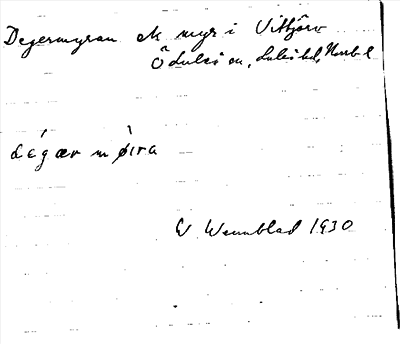 Degermyran ek myr i Vittjärv
Ö Luleå sn, Luleå hd, Nbtn l
dégær m ø̀ɪra
W. Wennblad 1930